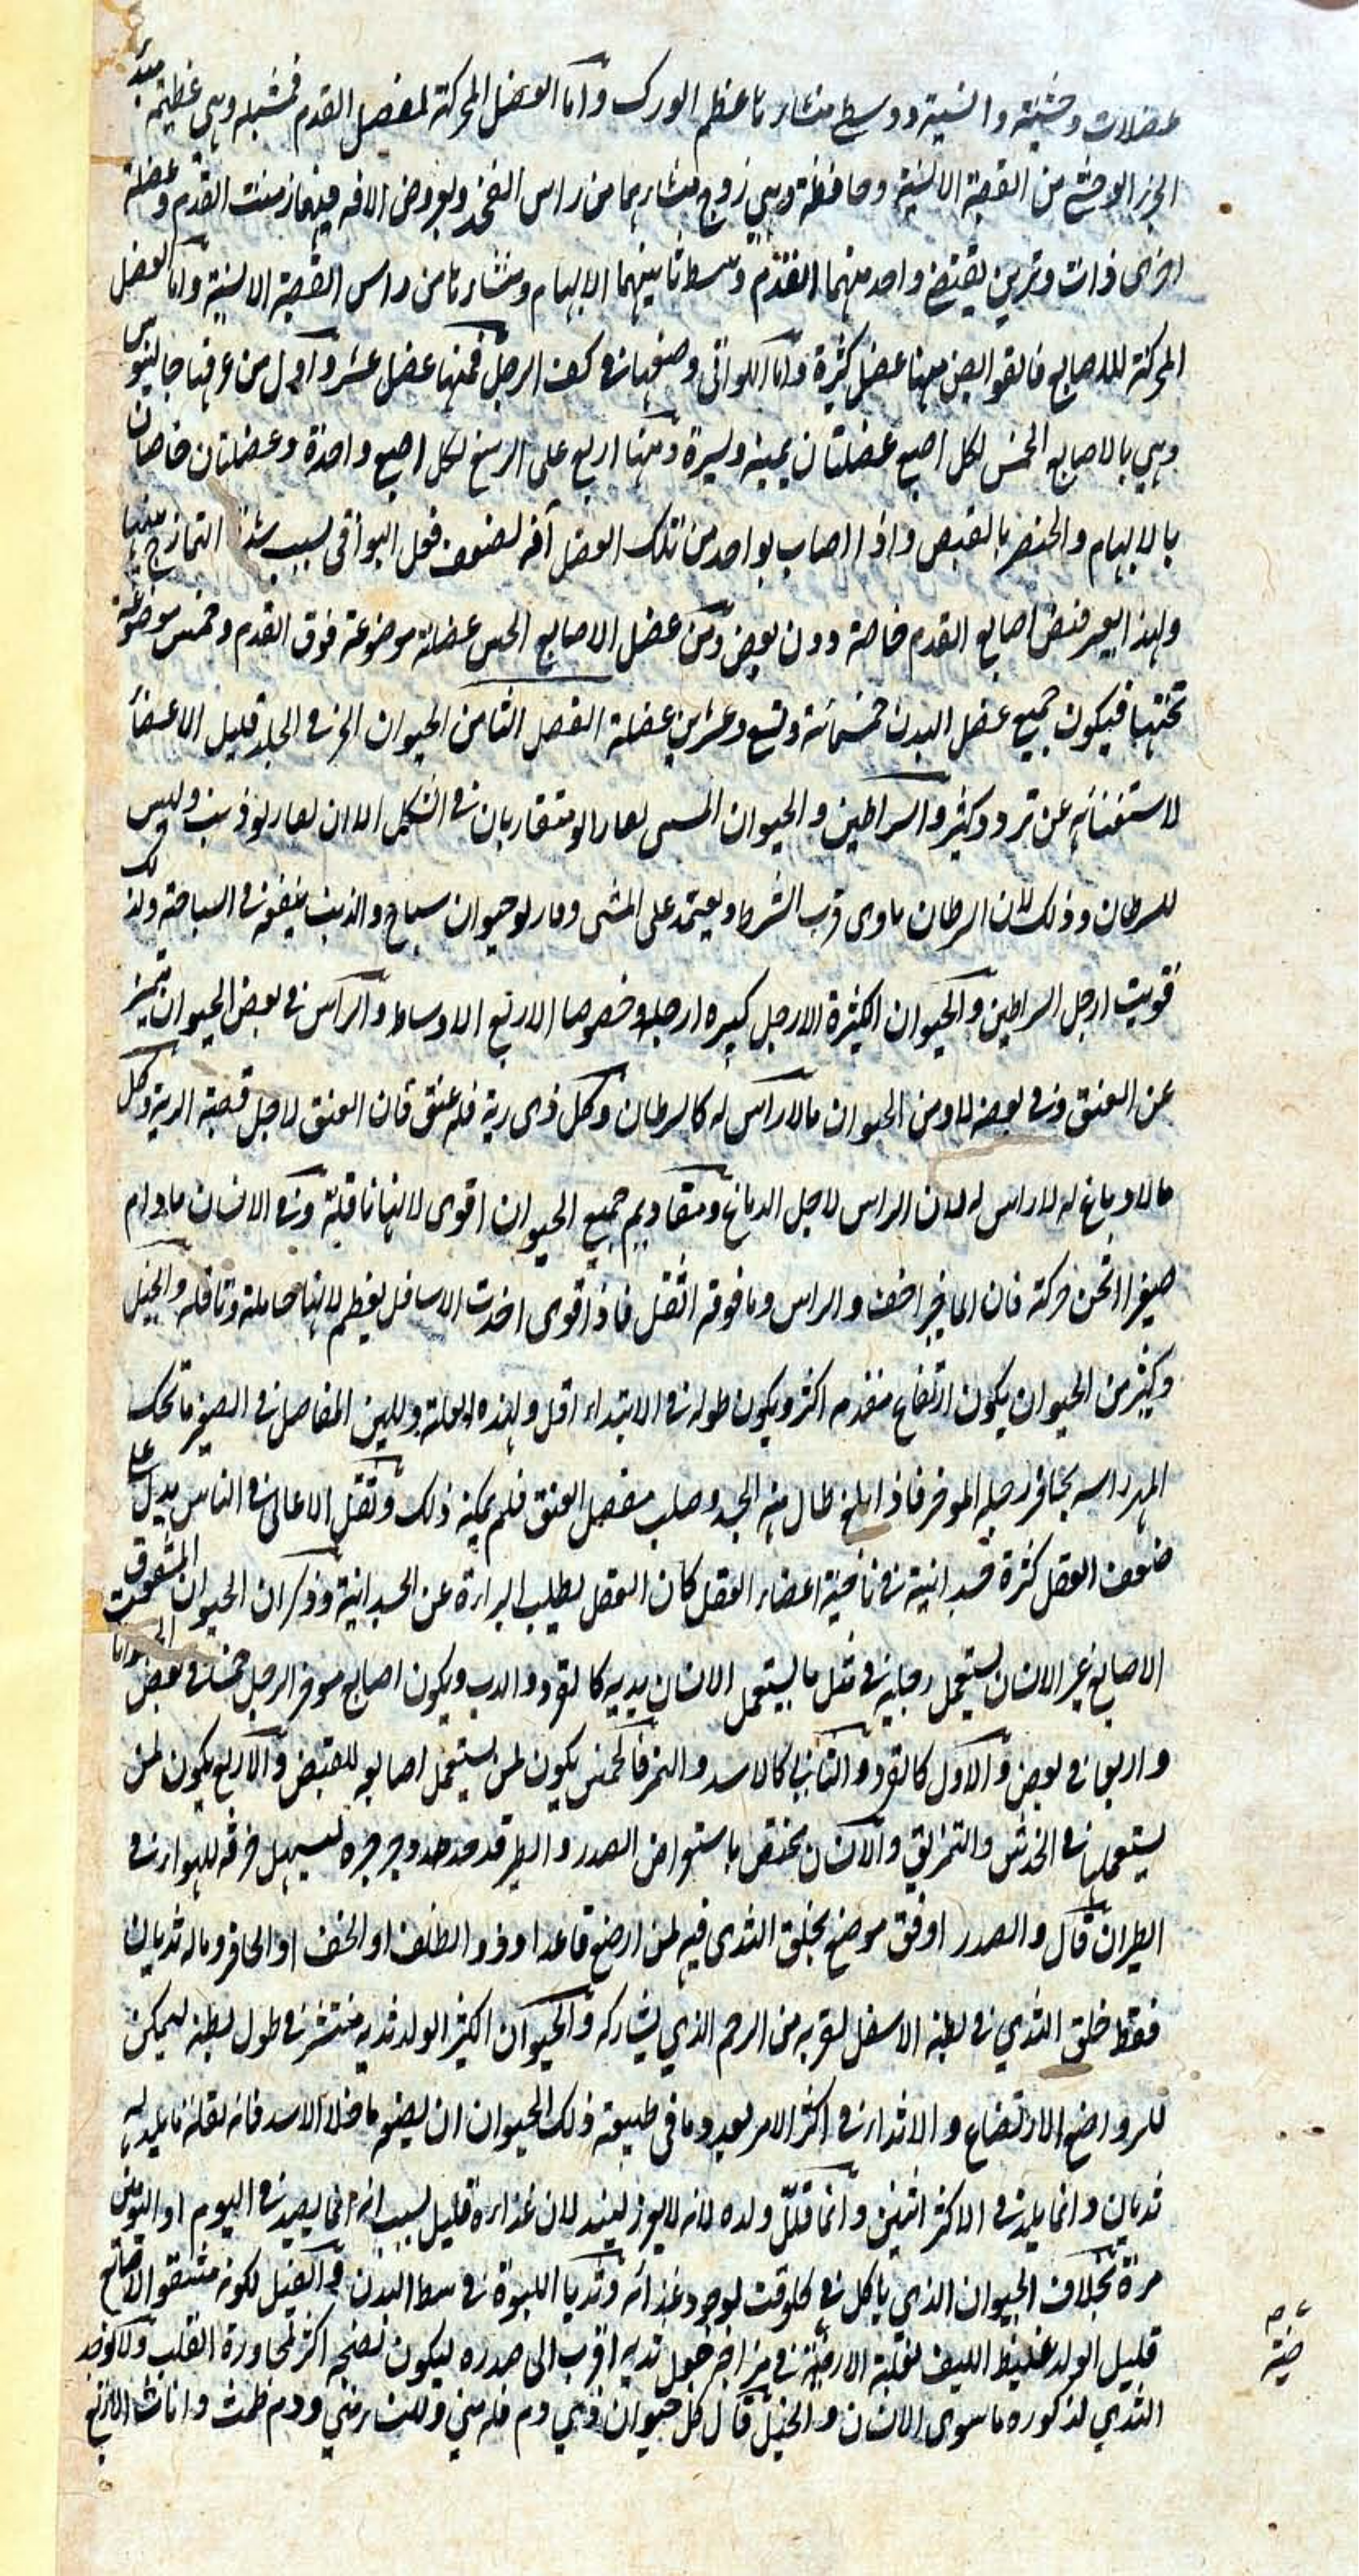 عضلات وحشية وانسية ووسط منشاءها عظم الورك واما العضل المحركة لمفصل القدم فمشيله وهي عظيمة مبدأ
الجزء الوحشي من القصبة الانسية وحافظة وهي زوج منشاءهما من راس الفخذ وبعروض الافة فيهما زمنت القدم وعضلة
اخرى ذات وترين يقبض واحد منهما القدم وبسط ثانيهما الابهام ومنشاءها من راس القصبة الانسية واما العضل
المحركة للاصابع فالقوابض منها عضل كثيرة واما اللواتي وضعها في كف الرجل فمنها عضل عشر واول من عرفها جالينوس
وهي بالاصابع الخمس لكل اصبع عضلتان يمينة ويسرة ومنها اربع على الرسغ لكل اصبع واحدة وعضلتان خاصتان
بالابهام والخنصر بالقبض واذا اصاب بواحد من تلك العضل آفة لضعف فعل البواقي بسبب شدة التمازج بينها
ولهذا يعسر قبض اصابع القدم خاصة دون بعض ومن عضل الاصابع الخمس عضلة موضوعة فوق القدم وخمس موضوعة
تحتها فيكون جميع عضل البدن خمسمائة وتسع وعشرين عضلة الفصل الثامن الحيوان الخزفي الجلد قليل الاعضاء
لاستغنائه عن تردد كثير والسراطين والحيوان المسمى لعارابو متقاربان في الشكل الا ان لعاربو ذنب وليس
للسرطان وذلك لان السرطان ماوى قرب الشط ويعتمد على المشي وعاربو حيوان سباح والذنب ينفعه في السباحة ولذلك
قويت ارجل السراطين والحيوان الكثيرة الارجل كبيرة ارجله وخصوصا الاربع الاوساط والراس في بعض الحيوان يتميز
عن العنق وفي بعضه لا ومن الحيوان مالا راس له كالسرطان وكل ذى رية فله عنق فان العنق لاجل قصبة الرية وكل
مالا دماغ له لا راس له لان الراس لاجل الدماغ ومقاديم جميع الحيوان اقوى لانها ناقلة وفي الانسان مادام
صغيرا اتخن حركة فان الماخير اخف والراس وما فوقه اثقل فاذا قوى اخذت الاسافل يعظم لانها حاملة وناقلة والخيل
وكثير من الحيوان يكون ارتفاع مقدمه اكثر ويكون طوله في الابتداء اقل ولهذه العلة ولين المفاصل في الصغر ما تحك
المهر راسه بحافر رجليه الموخر فاذا بلغ طال منه الجسد وصلب مفصل العنق فلم يمكنه ذلك وثقل الاعالي في الناس يدل على
ضعف العقل كثرة جسدانية في ناحية اعضاء العقل كان العقل يطلب البراءة عن الجسدانية وذكر ان الحيوان المشقوق
الاصابع غير الانسان يستعمل رجليه في مثل ما يستعمل الانسان يديه كالقرد والدب ويكون اصابع موخر الرجل خمسا في بعض الحيوانات
واربعا في بعض والاول كالقرد والثاني كالاسد والنمر فالخمس يكون لمن يستعمل اصابعه للقبض والاربع يكون لمن
يستعملها في الخدش والتمزيق والانسان يختص باستعراض الصدر والطير قد حدد جوجوه ليسهل خرقه للهواء في
الطيران قال والصدر اوفق موضع يخلق الثدي فيه لمن ارضع قاعدا وذو الظلف او الخف او الحافر وماله ثديان
فقط خلق الثدي في بطنه الاسفل لقربه من الرحم الذي يشاركه والحيوان الكثير الولد ثديه منتشر في طول بطنه ليمكن
للرواضع الارتضاع والاثداء في اكثر الامر بعدد ما في طبيعة ذلك الحيوان ان يضعه ما خلا الاسد فانه لقلة ما يلد له
ثديان وانما يلد في الاكثر اثنين وانما قلل ولده لانه لا يعوز لبنه لان غذاءه قليل بسبب انه انما يصيد في اليوم او اليومين
مرة بخلاف الحيوان الذي ياكل في كل وقت لوجود غذائه وثديا اللبوة في وسط البدن والفيل لكونه مشقوق الاصابع
قليل الولد غليظ الليف لغلبة الارضية في مزاجه جعل ثديه اقرب الى صدره ليكون نضجه اكثر لمجاورة القلب ولا يوجد
الثدي لذكوره ما سوى الانسان والخيل قال كل حيوان ذي دم فله مني وللناس مني ودم طمث واناث الاربع